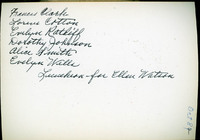 Frances Clark
Lorene Cotton
Evelyn Ratliff
Dorothy Johnson
Alice Smith
Evelyn Wells
Luncheon - for Ellen Watson